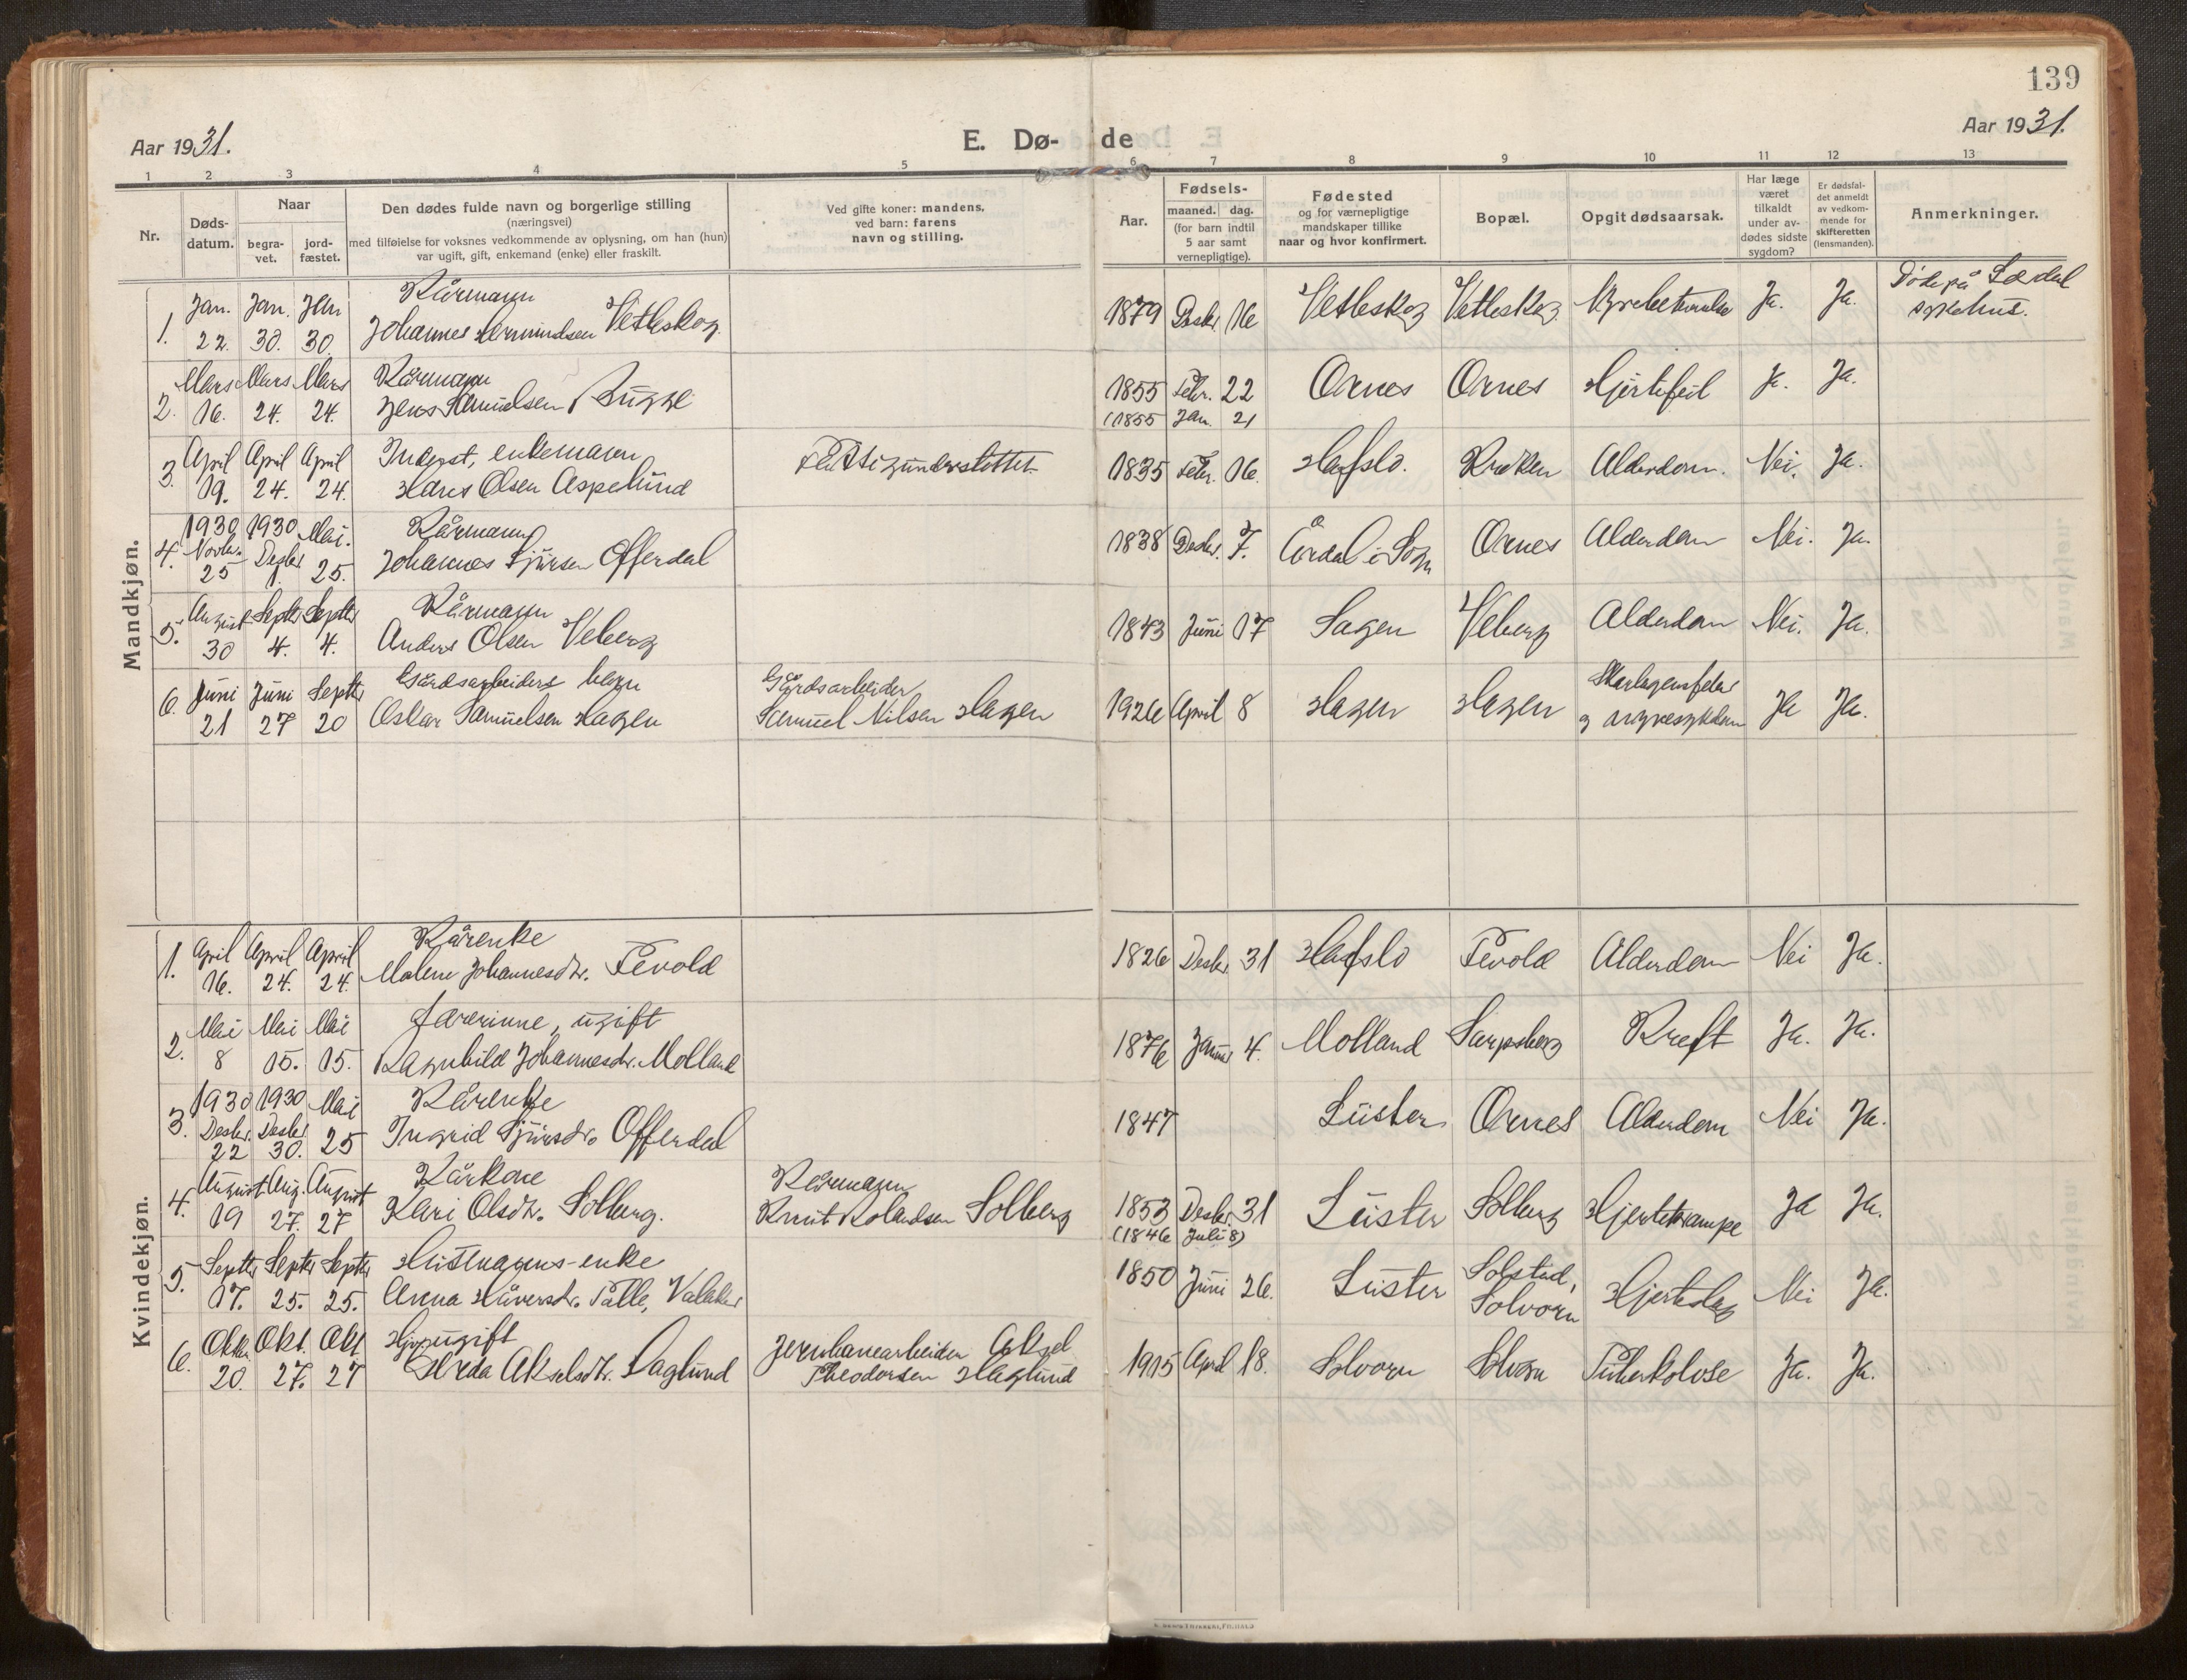 139
Aar 1931.
E. Dø- de
Aar 1931.
1 2 3 4 5 6 7 8 9 10 11 12 13
Nr.
Døds-
datum.
Naar
begra-
vet.
jord-
fæstet.
Den dødes fulde navn og borgerlige stilling
(næringsvei)
med tilføielse for voksnes vedkommende av oplysning, om han (hun)
var ugift, gift, enkemand (enke) eller fraskilt.
Ved gifte koner: mandens,
ved barn: farens
navn og stilling.
Aar.
Fødsels-
maaned. dag.
(for barn indtil
5 aar samt
vernepligtige).
Fødested
og for værnepligtige
mandskaper tillike
naar og hvor konfirmert.
Bopæl.
Opgit dødsaarsak.
Har læge
været
tilkaldt
under av-
dødes sidste
sygdom?
Er dødsfal-
det anmeldt
av vedkom-
mende for
skifteretten
(lensmanden).
Anmerkninger.
Mandkjøn.
1. Jan. 22. Jan. 30. Jan 30.
Kårmann
Johannes Vetleskog
1879 Desbr 16 Vetleskog Vetleskog Ja. Ja.
Døde på Lærdal
sykehus.
2. Mars 16. Mars 24. Mars 24.
Kårmann
Jens Samuelsen Bugge
1855 Febr. 22 Ornes Ornes Hjertefeil Ja. Ja.
(1855 Jan. 21
3. April 19. April 24. April 24.
Inderst, enkemann
Hans Olsen Aspelund
Fattigunderstøttet
1835 Febr. 16. Hafslo. Kroken Alderdom. Nei. Ja.
4. 1930 Novbr. 25 1930 Desbr 1. Mai. 25.
Kårmann
Johannes Sjursen Offerdal
1838 Desbr. 7. Årdal i Sogn Ornes Alderdom Nei. Ja.
5. August 30 Septbr 4. Septbr 4.
Kårmann
Anders Olsen Veberg
1843 Juni 17 Hagen Veberg Alderdom Nei. Ja.
6. Juni 21 Juni 27 Septbr 20
Gårdsarbeiders barn
Oskar Samuelsen Hagen
Gårdsarbeider
Samuel Nilsen Hagen
1926 April 8 Hagen Hagen Skarlagensfeber
og nyresykdom Ja Ja.
Kvindekjøn.
1. April 16. April 24. April 24.
Kårenke
Malene Johannesdtr. Fevold
1826 Desbr 31 Hafslo Fevold Alderdom Nei Ja.
2. Mai 8 Mai 15. Mai 15.
Lærerinne, ugift
Ragnhild Johannesdtr. Molland
1876 Januar 4. Molland Sarpsborg Kreft Ja. Ja.
3. 1930 Desbr. 22 1930 Desbr 30. Mai 25
Kårenke
Ingrid Sjursdtr. Offerdal
1847 Luster Ornes Alderdom Nei Ja.
4. August 19 Aug. 27. August 27
Kårkone
Kari Olsdtr. Solberg.
Kårmann
Knut Rolandsen Solberg
1853 Desbr. 31 Luster Solberg Hjertekrampe Ja Ja.
(1846 Juli 8)
5. Septbr 17. Septbr 25. Septbr 25.
Husmanns-enke
Anna Håversdtr. Talle, Valaker
1850 Juni 26. Luster Solstad,
Solvorn Hjerteslag Nei Ja.
6. Oktbr. 20. Okt. 27. Okt 27
ugift
Gerda Akselsdtr. Haglund
Jernbanearbeider Aksel
Theodorsen Haglund
1915 April 18. Solvorn Solvorn Tuberkolose Ja. Ja.